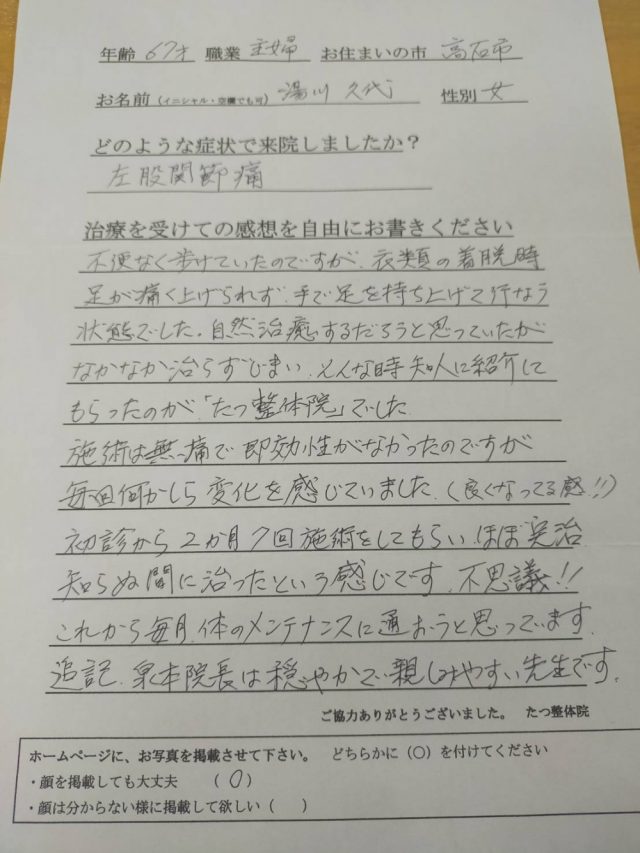 年齢 67才 職業 主婦 お住まいの市 高石市
お名前(イニシャル・空欄でも可) 湯川 久代 性別 女
どのような症状で来院しましたか?
左股関節痛
治療を受けての感想を自由にお書きください
不便なく歩けていたのですが、衣類の着脱時
足が痛く上げられず、手で足を持ち上げて行なう
状態でした。自然治癒するだろうと思っていたが
なかなか治らずじまい、そんな時知人に紹介して
もらったのが、「たつ整体院」でした
施術は無痛で即効性がなかったのですが
毎回何かしら変化を感じていました。(良くなってる感!!)
初診から2か月7回施術をしてもらい、ほぼ完治
知らぬ間に治ったという感じです。不思議!!
これから毎月、体のメンテナンスに通おうと思っています。
追記、泉本院長は穏やかで親しみやすい先生です。
ご協力ありがとうございました。 たつ整体院
ホームページに、お写真を掲載させて下さい。 どちらかに(○)を付けてください
・顔を掲載しても大丈夫 (○)
・顔は分からない様に掲載して欲しい( )